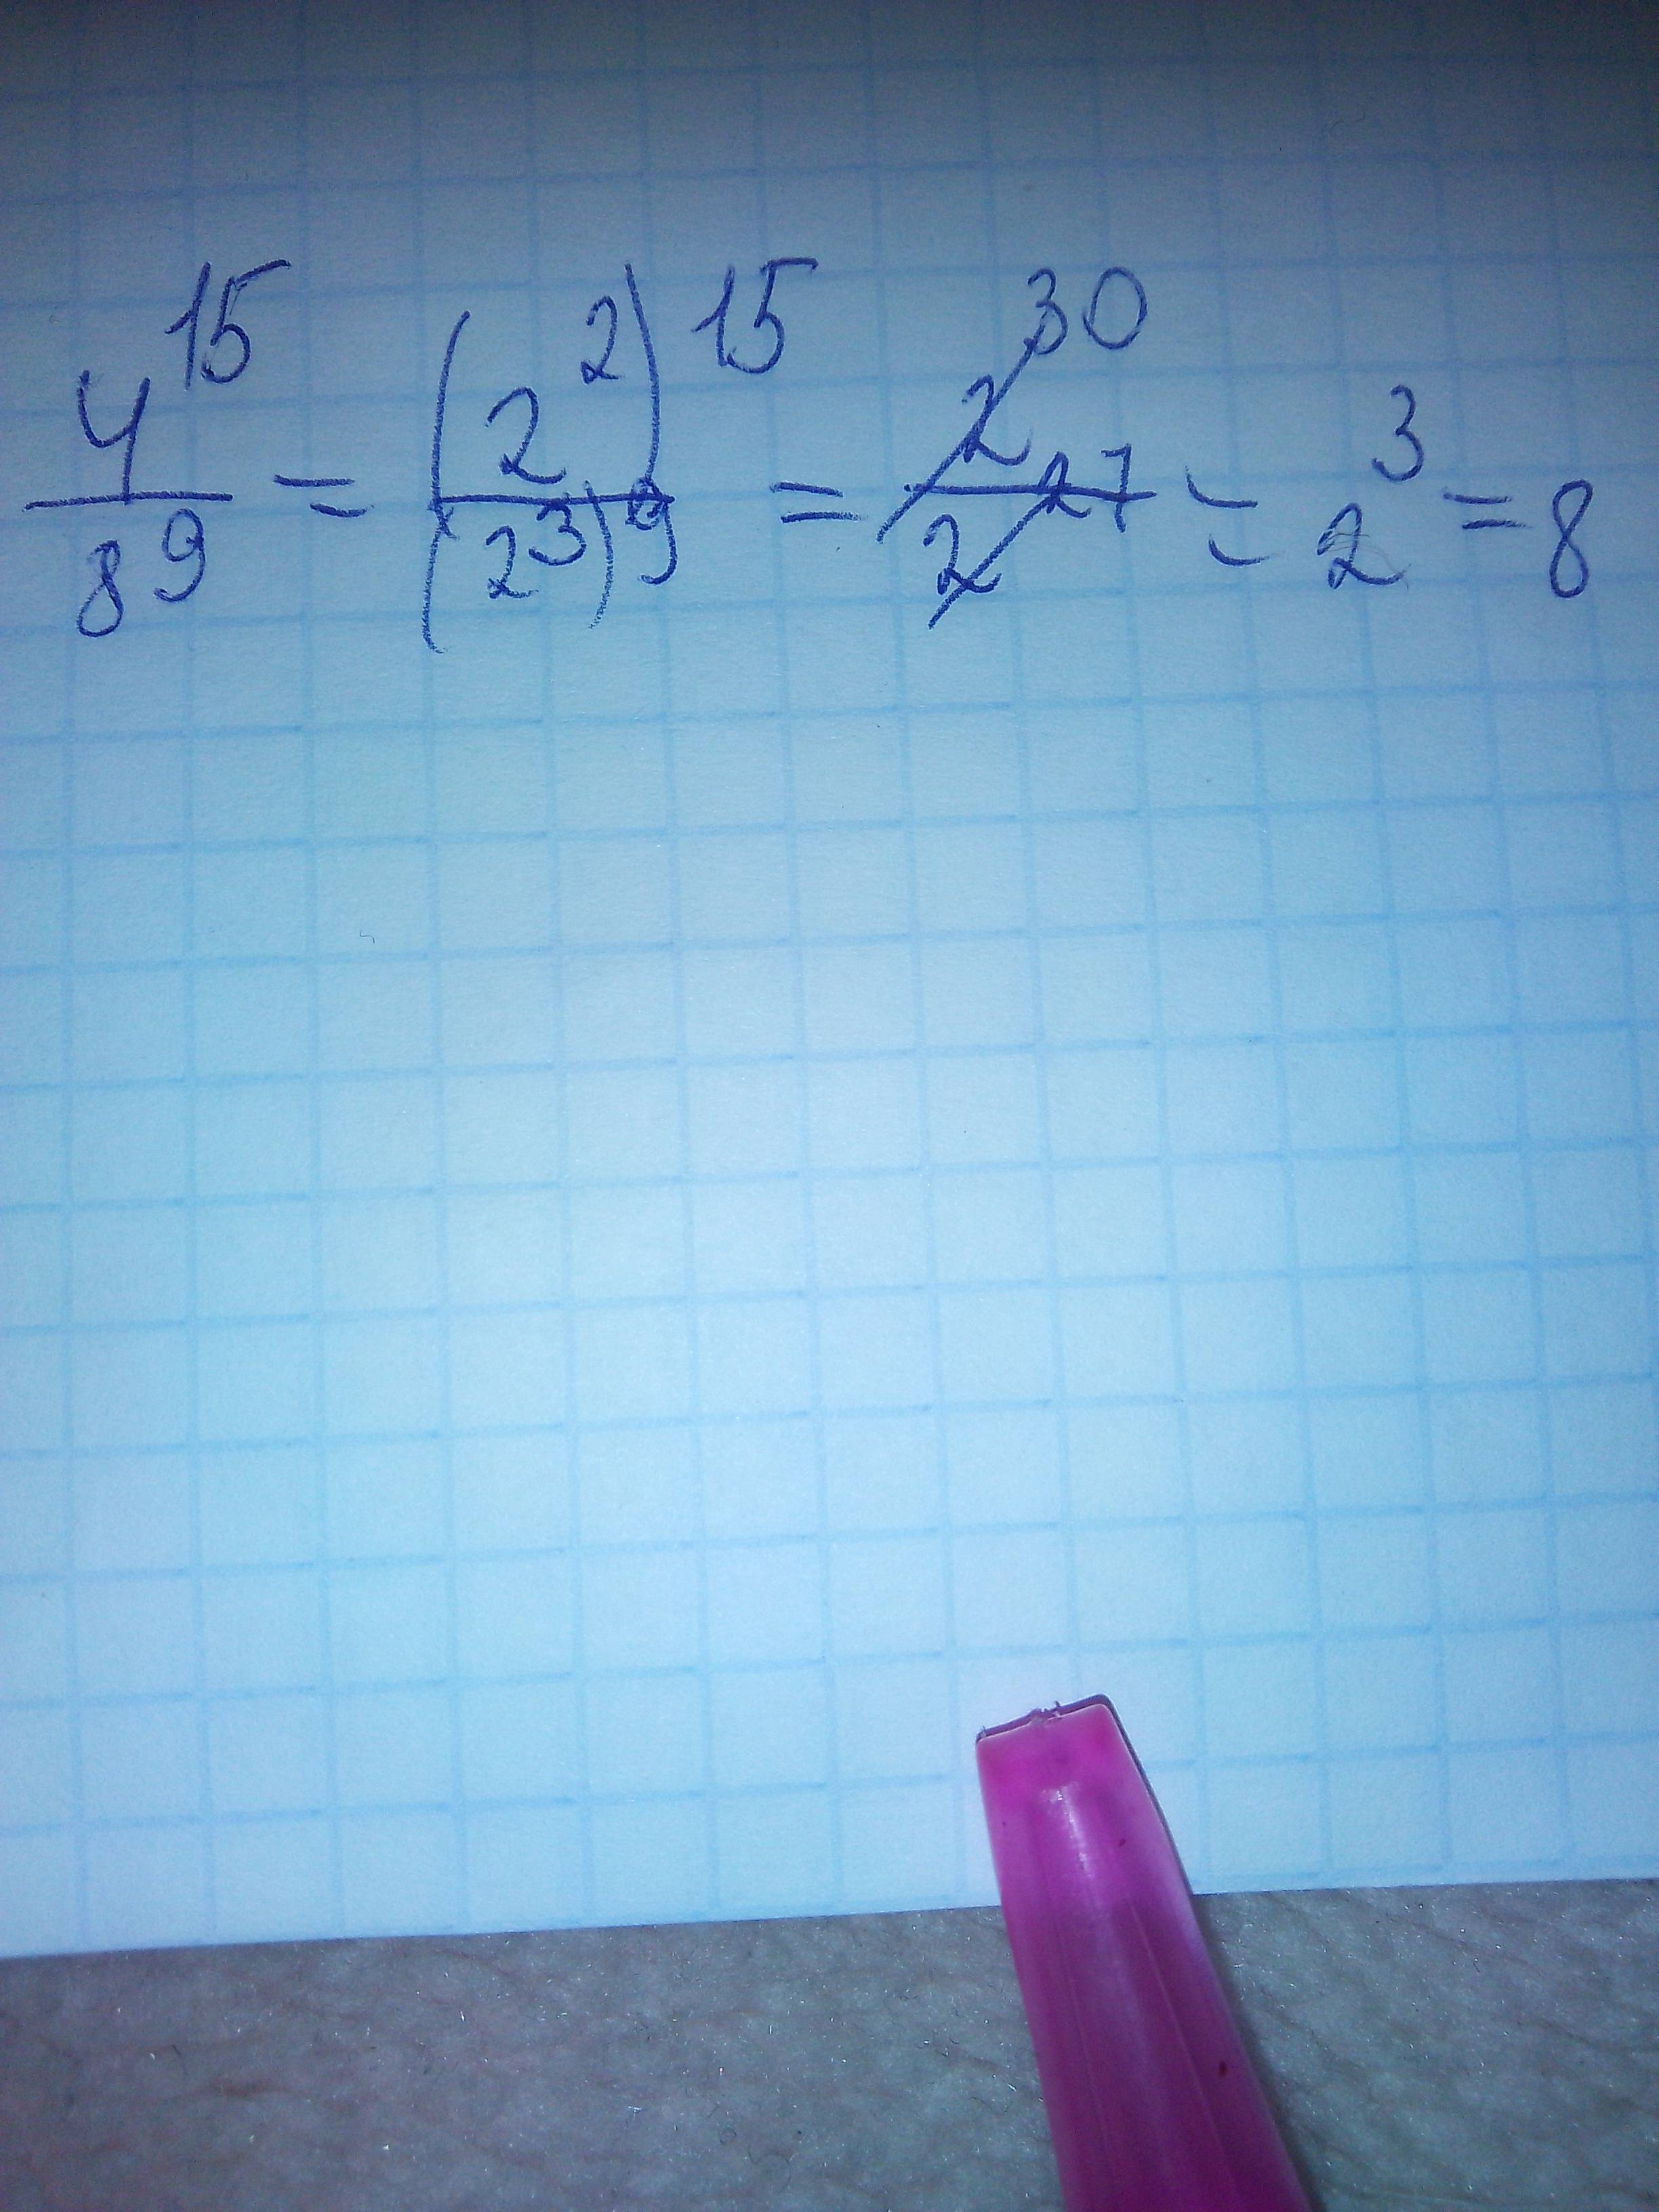 4^15/8^9 = (2^2)^15/(2^3)^9 = 2^30/2^27 = 2^3 = 8